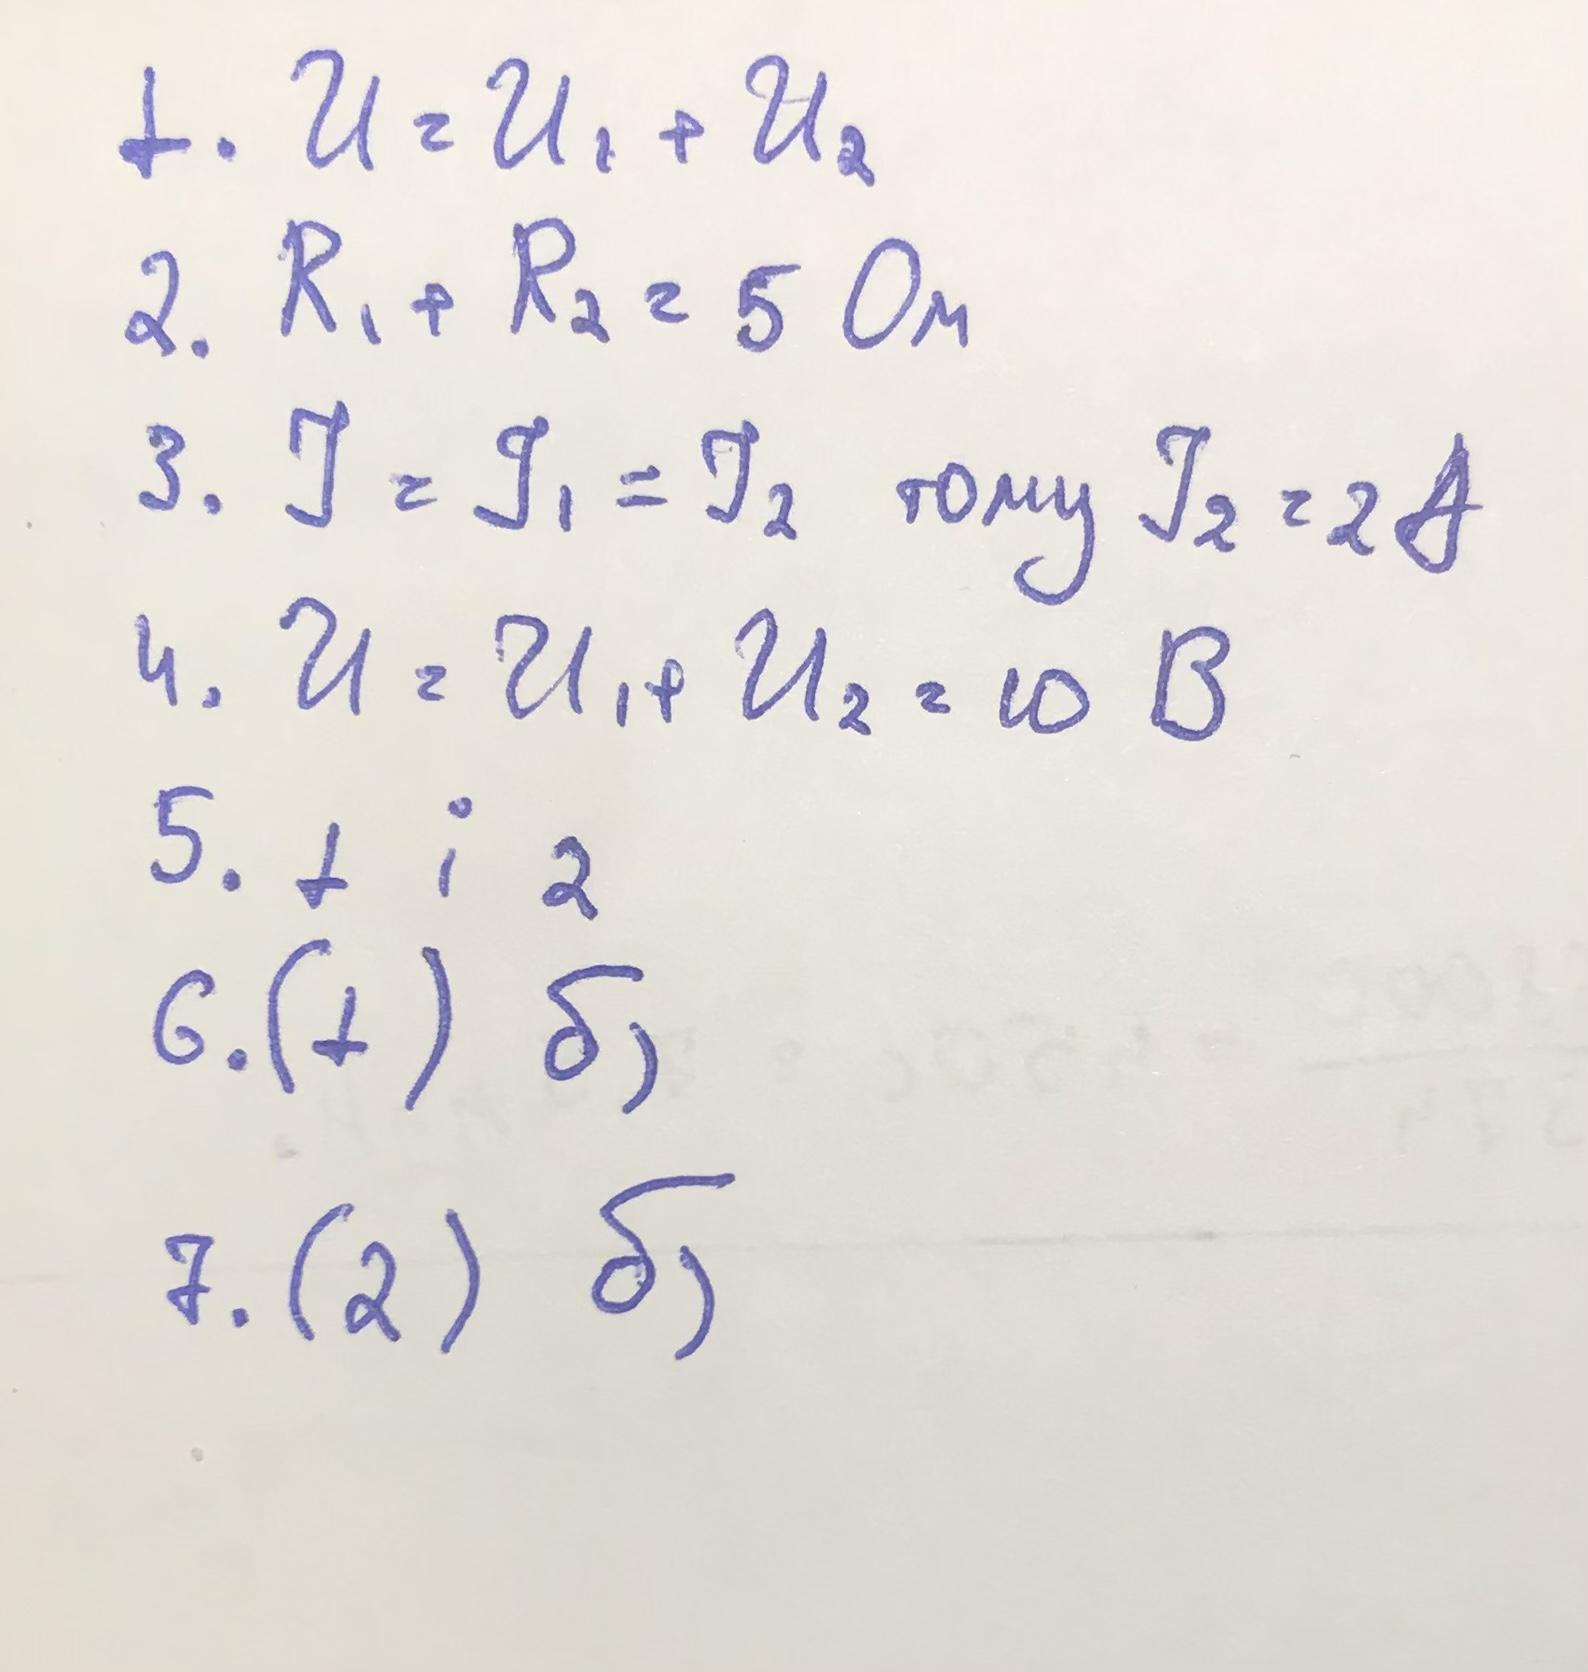 1. U = U₁ + U₂
2. R₁ + R₂ = 5 Ом
3. I = I₁ = I₂ тому I₂ = 2 А
4. U = U₁ + U₂ = 10 В
5. 1 і 2
6. (1) б)
7. (2) б)